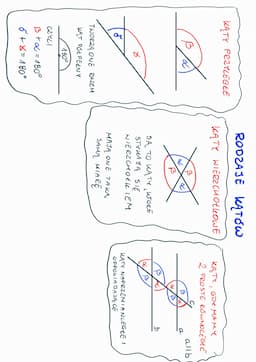 RODZAJE KĄTÓW
KĄTY PRZYLEGŁE
β
α
δ
γ
TWORZĄ ONE RAZEM
KĄT PÓŁPEŁNY
180°
CZYLI
β + α = 180°
δ + γ = 180°
KĄTY WIERZCHOŁKOWE
α
β
β
α
SĄ TO KĄTY, KTÓRE
STYKAJĄ SIĘ
WIERZCHOŁKIEM
MAJĄ ONE TAKĄ
SAMĄ MIARĘ
KĄTY, GDY MAMY
2 PROSTE RÓWNOLEGŁE
a || b
c
a
b
α
β
β
α
α
β
β
α
KĄTY NAPRZEMIANLEGŁE I
ODPOWIADAJĄCE